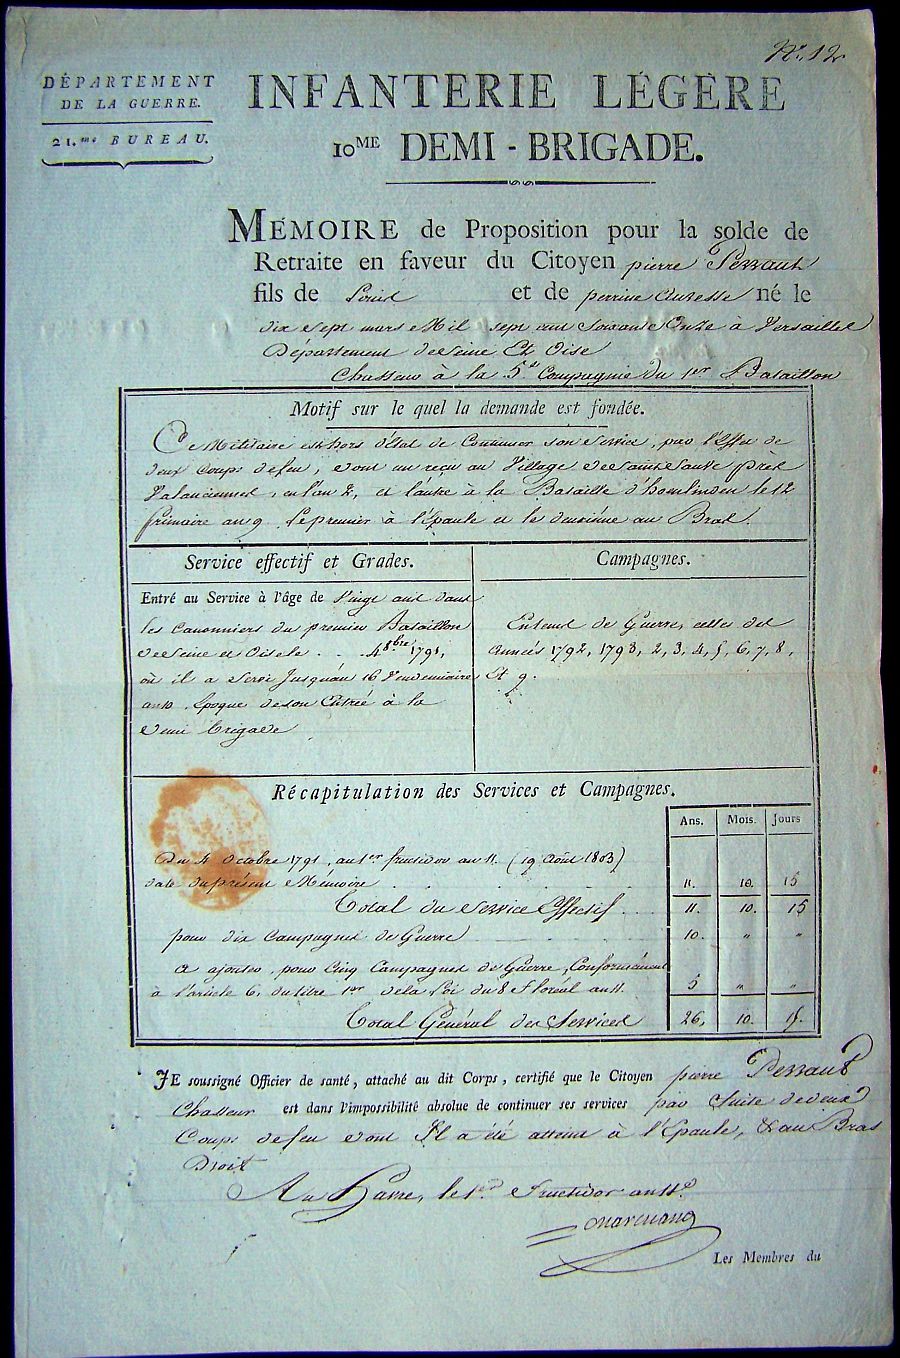 N.° 12
DÉPARTEMENT
DE LA GUERRE.
21.me BUREAU.
INFANTERIE LÉGÈRE
10ME DEMI - BRIGADE.
MÉMOIRE de Proposition pour la solde de
Retraite en faveur du Citoyen pierre Perraut
fils de Louis et de perrine né le
dix sept mars Mil sept cent Soixante Onze à Versailles
Département de Seine Et Oise
Chasseur à la 5e Compagnie du 1er Bataillon
Motif sur le quel la demande est fondée.
Ce Militaire est hors d'état de Continuer son Service, par l'Effet de
deux Coups de feu, dont un reçu au Village de près
Valanciennes, en l'an 2, et l'autre à la Bataille d'hoenlinden le 12
frimaire an 9. Le premier à l'Épaule et le deuxième au Bras.
Service effectif et Grades.
Entré au Service à l'âge de Vingt ans dans
les Canonniers du premier Bataillon
de Seine et Oise le . . 4 8bre 1791,
où il a Servi Jusqu'au 16 Vendemiaire
an 10. Epoque de son Entrée à la
demi brigade
Campagnes.
En tems de Guerre, celles des
années 1792, 1793, 2, 3, 4, 5, 6, 7, 8,
Et 9.
Récapitulation des Services et Campagnes.
Ans. Mois. Jours
Du 4 Octobre 1791, au 1er fructidor an 11. (19 Août 1803)
date du présent Mémoire . . . . 11. 10. 15
Total du Service Effectif . . . 11. 10. 15
pour dix Campagnes de Guerre . . . . 10. " "
a ajouter, pour Cinq Campagnes de Guerre, Conformément
à l'article 6. du titre 1er de la Loi du 8 Floréal an 11. 5 " "
Total Général des Services 26. 10. 15.
JE soussigné Officier de santé, attaché au dit Corps, certifié que le Citoyen pierre Perraut
Chasseur est dans l'impossibilité absolue de continuer ses services par Suite de deux
Coups de feu dont Il a été atteint à l'Epaule, & au Bras
Droit
Au Havre, le 1er Fructidor an 11e.
Les Membres du